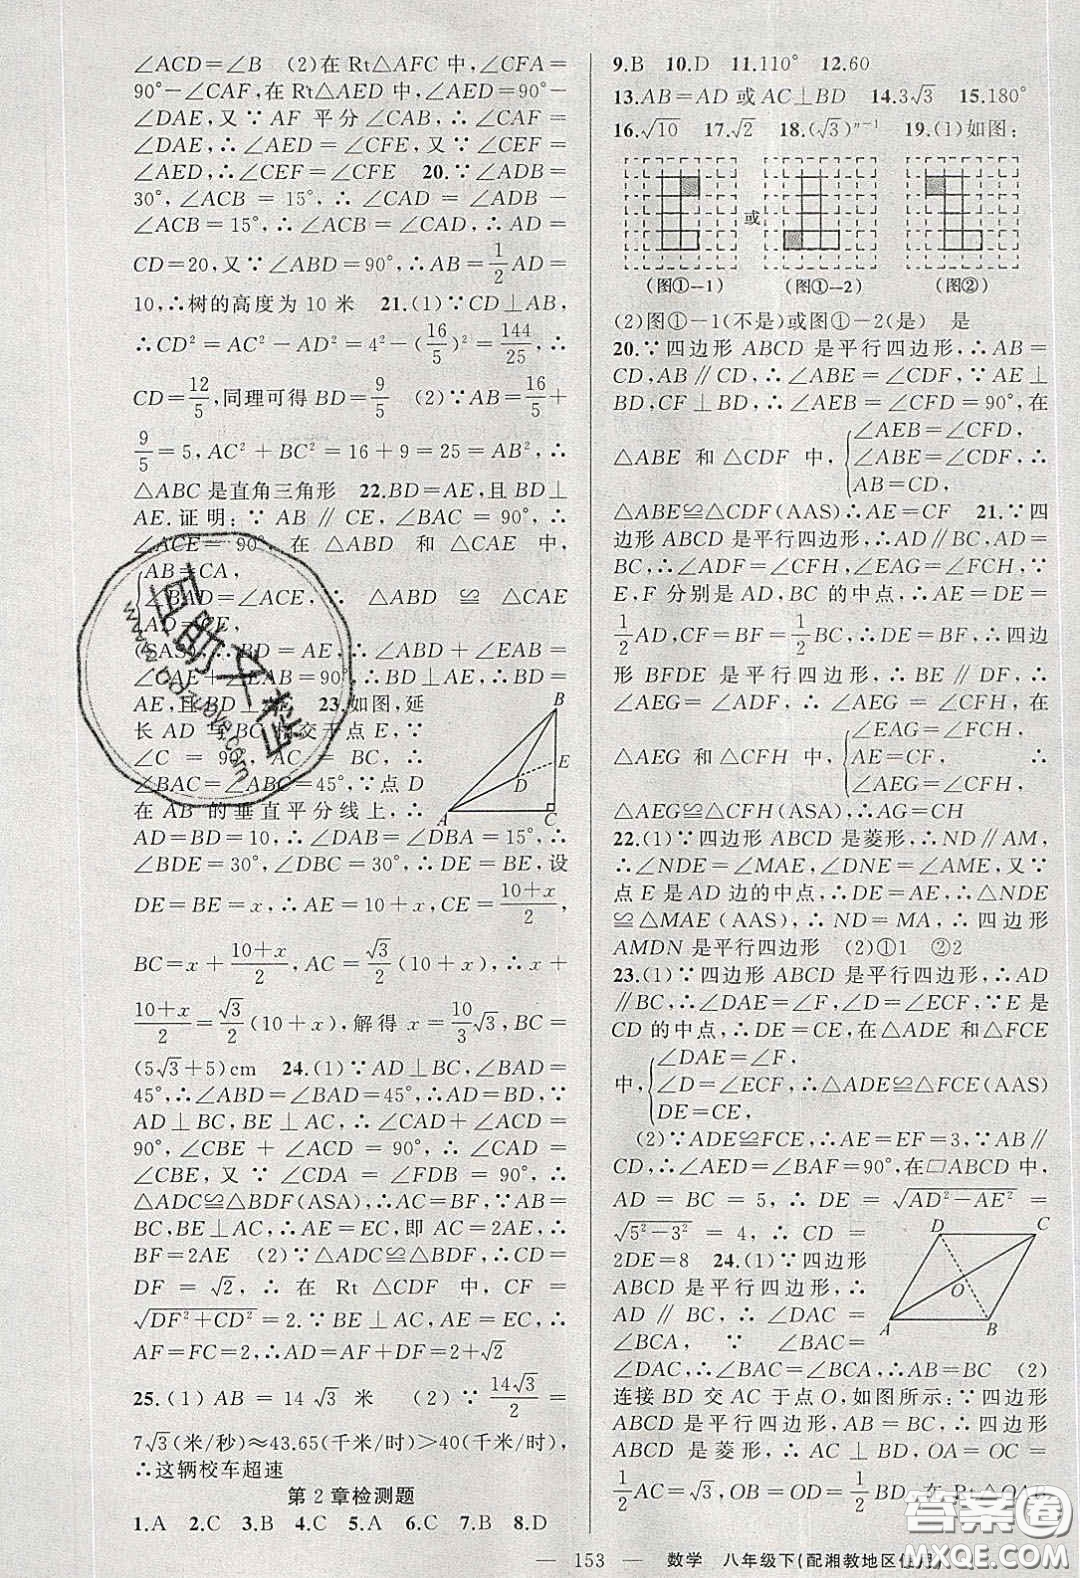 ∠ACD=∠B (2)在Rt△AFC中,∠CFA=
90°-∠CAF,在Rt△AED中,∠AED=90°-
∠DAE,又∵AF平分∠CAB,∴∠CAF=
∠DAE,∴∠AED=∠CFE,又∵∠CEF=
∠AED,∴∠CEF=∠CFE 20.∵∠ADB=
30°,∠ACB = 15°,∴∠CAD = ∠ADB -
∠ACB=15°,∴∠ACB=∠CAD,∴AD=
CD=20,又∵∠ABD=90°,∴AB=1/2AD=
10,∴树的高度为10米 21.(1)∵CD⊥AB,
∴CD²=AC²-AD²=4²-(16/5)²=144/25,∴
CD=12/5,同理可得BD=9/5 (2)∵AB=16/5+
9/5=5,AC²+BC²=16+9=25=AB²,∴
△ABC是直角三角形 22.BD=AE,且BD⊥
AE.证明:∵AB∥CE,∠BAC=90°,∴
∠ACE=90°,在△ABD和△CAE中,
AB=CA,
∠BAD=∠ACE,∴△ABD≌△CAE
AD=CE,
(SAS),∴BD=AE,∴∠ABD+∠EAB=
∠CAE+∠EAB=90°,
AE,且BD⊥AE 23.如图,延
长AD与BC相交于点E,∵
∠C = 90°,AC = BC,∴
∠BAC=∠ABC=45°,∵点D
在AB的垂直平分线上,∴
AD=BD=10,∴∠DAB=∠DBA=15°,∴
∠BDE=30°,∠DBC=30°,∴DE=BE,设
DE=BE=x,∴AE=10+x,CE=(10+x)/2,
BC=x+(10+x)/2,AC=√3/2(10+x),∴x+
(10+x)/2=√3/2(10+x),解得x=10/3√3,BC=
(5√3+5)cm 24.(1)∵AD⊥BC,∠BAD=
45°,∴∠ABD=∠BAD=45°,∴AD=BD,∵
AD⊥BC,BE⊥AC,∴∠CAD+∠ACD=
90°,∠CBE+∠ACD = 90°,∴∠CAD =
∠CBE,又∵∠CDA = ∠FDB = 90°,∴
△ADC≌△BDF(ASA),∴AC=BF,∵AB=
BC,BE⊥AC,∴AE=EC,即AC=2AE,∴
BF=2AE (2)∵△ADC≌△BDF,∴CD=
DF = √2,∴在Rt△CDF中,CF =
√(DF²+CD²)=2.∵BE⊥AC,AE=EC,∴
AF=FC=2,∴AD=AF+DF=2+√2
25.(1)AB = 14√3米 (2)∵14√3/2 =
7√3(米/秒)≈43.65(千米/时)>40(千米/时),
∴这辆校车超速
第2章检测题
1.A 2.C 3.B 4.C 5.A 6.C 7.B 8.D
9.B 10.D 11.110° 12.60
13.AB=AD或AC⊥BD 14.3√3 15.180°
16.√10 17.√2 18.(√3)ⁿ⁻¹ 19.(1)如图:
或
(图①-1) (图①-2) (图②)
(2)图①-1(不是)或图①-2(是) 是
20.∵四边形ABCD是平行四边形,∴AB=
CD,AB∥CD,∴∠ABE=∠CDF,∵AE⊥
BD,CF⊥BD,∴∠AEB=∠CFD=90°,在
△ABE和△CDF中,
∠AEB=∠CFD,
∠ABE=∠CDF,∴
AB=CD,
△ABE≌△CDF(AAS)∴AE=CF 21.∵四
边形ABCD是平行四边形,∴AD∥BC,AD=
BC,∴∠ADF=∠CFH,∠EAG=∠FCH,∵
E,F分别是AD,BC的中点,∴AE=DE=
1/2AD,CF=BF=1/2BC,∴DE=BF,∴四边
形BFDE是平行四边形,∴BE∥DF,∴
∠AEG = ∠ADF,∴∠AEG = ∠CFH,在
△AEG和△CFH中,
∠EAG=∠FCH,
AE=CF,∴
∠AEG=∠CFH,
△AEG≌△CFH(ASA),∴AG=CH
22.(1)∵四边形ABCD是菱形,∴ND∥AM,
∴∠NDE=∠MAE,∠DNE=∠AME,又∵
点E是AD边的中点,∴DE=AE,∴△NDE
≌△MAE(AAS),∴ND=MA,∴四边形
AMDN是平行四边形 (2)①1 ②2
23.(1)∵四边形ABCD是平行四边形,∴AD
∥BC,∴∠DAE=∠F,∠D=∠ECF,∵E是
CD的中点,∴DE=CE,在△ADE和△FCE
∠DAE=∠F,
中,∠D=∠ECF,∴△ADE≌△FCE(AAS)
DE=CE,
(2)∵ADE≌FCE,∴AE=EF=3,∵AB∥
CD,∴∠AED=∠BAF=90°,在▱ABCD中,
AD = BC = 5,∴DE = √(AD²-AE²) =
√(5²-3²) = 4,∴CD =
2DE=8 24.(1)∵四边形
ABCD是平行四边形,∴
AD∥BC,∴∠DAC =
∠BCA,∵∠BAC=
∠DAC,∴∠BAC=∠BCA,∴AB=BC (2)
连接BD交AC于点O,如图所示:∵四边形
ABCD是平行四边形,AB=BC,∴四边形
ABCD是菱形,∴AC⊥BD,OA=OC=
1/2AC=√3,OB=OD=1/2BD,在Rt△OAB
B
E
D
A
C
D
C
O
A
B
— 153 — 数学 八年级下(配湘教地区使用)
答案圈
MXQE.COM